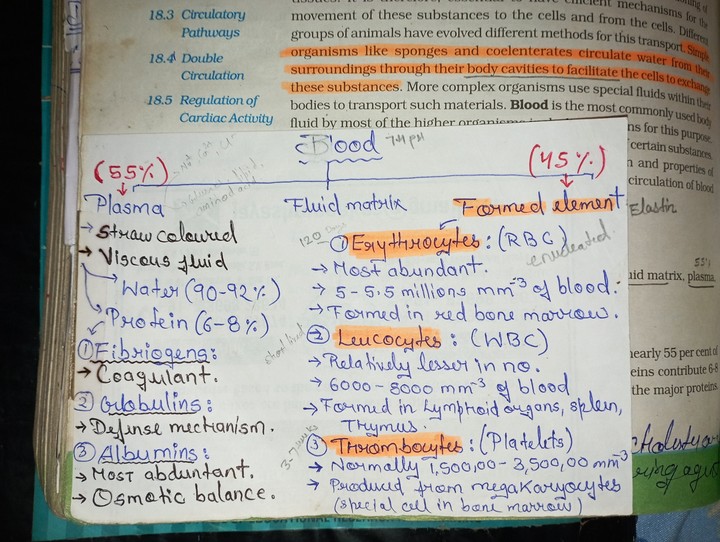 18.3 Circulatory
Pathways
18.4 Double
Circulation
18.5 Regulation of
Cardiac Activity
movement of these substances to the cells and from the cells. Different
groups of animals have evolved different methods for this transport. Simple
organisms like sponges and coelenterates circulate water from their
surroundings through their body cavities to facilitate the cells to exchange
these substances. More complex organisms use special fluids within their
bodies to transport such materials. Blood is the most commonly used body
fluid by most of the higher organisms
ns for this purpose.
certain substances
n and properties of
circulation of blood
Elastin
55%
uid matrix, plasma
nearly 55 per cent of
eins contribute 6-8
the major proteins
Blood 7.4 pH
(55%) (45%)
Plasma Fluid matrix Formed element
→ Straw coloured
→ Viscous fluid
→ Water (90-92%)
→ Protein (6-8%)
① Fibriogens:
→ Coagulant.
② Globulins:
→ Defense mechanism.
③ Albumins:
→ Most abduntant.
→ Osmotic balance.
120 Days
① Erythrocytes: (RBC)
enucleated
→ Most abundant.
→ 5-5.5 millions mm⁻³ of blood.
→ Formed in red bone marrow.
② Leucocytes: (WBC)
short lived
→ Relatively lesser in no.
→ 6000-8000 mm⁻³ of blood
→ Formed in Lymphoid organs, spleen,
Thymus.
③ Thrombocytes: (Platelets)
→ Normally 1,500,00-3,500,00 mm⁻³
→ Produced from megakaryocytes
(special cell in bone marrow)